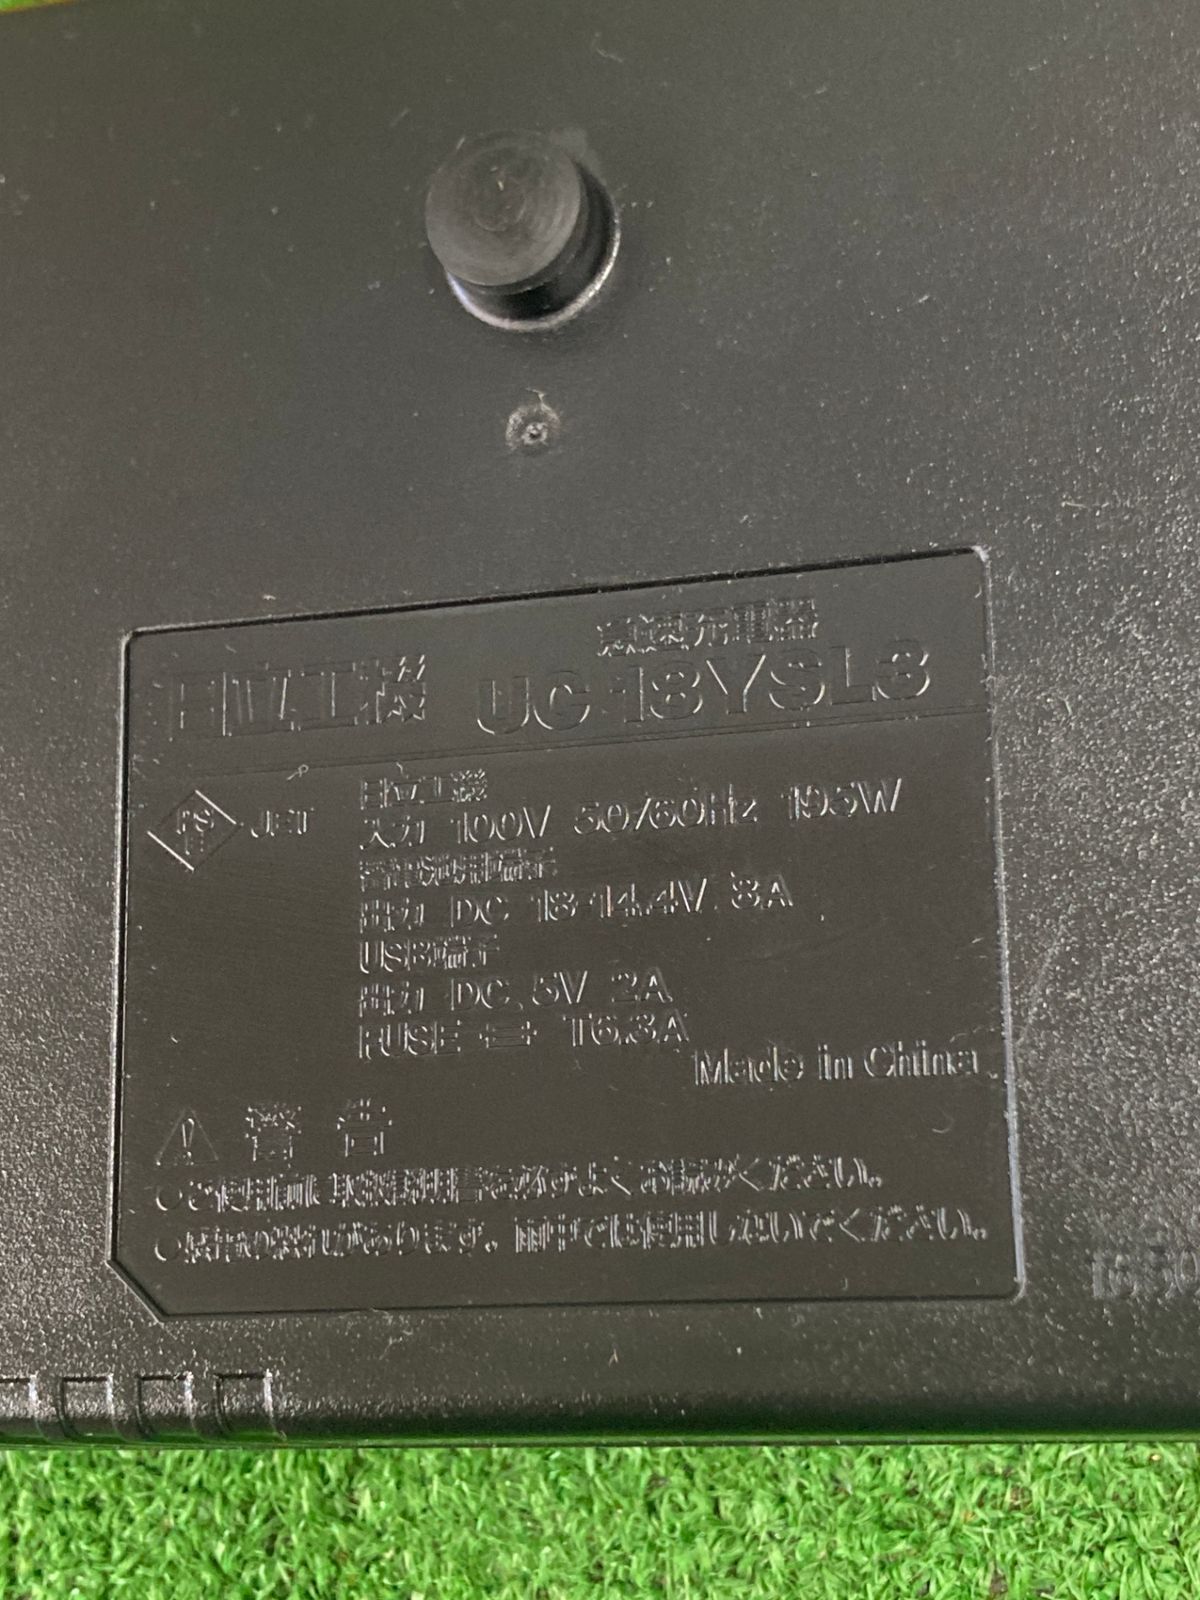 急速充電器
日立工機 UC 18YSL3
PS
E JET
日立工機
入力 100V 50/60Hz 195W
蓄電池用端子
出力 DC 18-14.4V 8A
USB端子
出力 DC 5V 2A
FUSE T6.3A
Made in China
警告
ご使用前に取扱説明書を必ずよくお読みください。
感電の恐れがあります。雨中では使用しないでください。